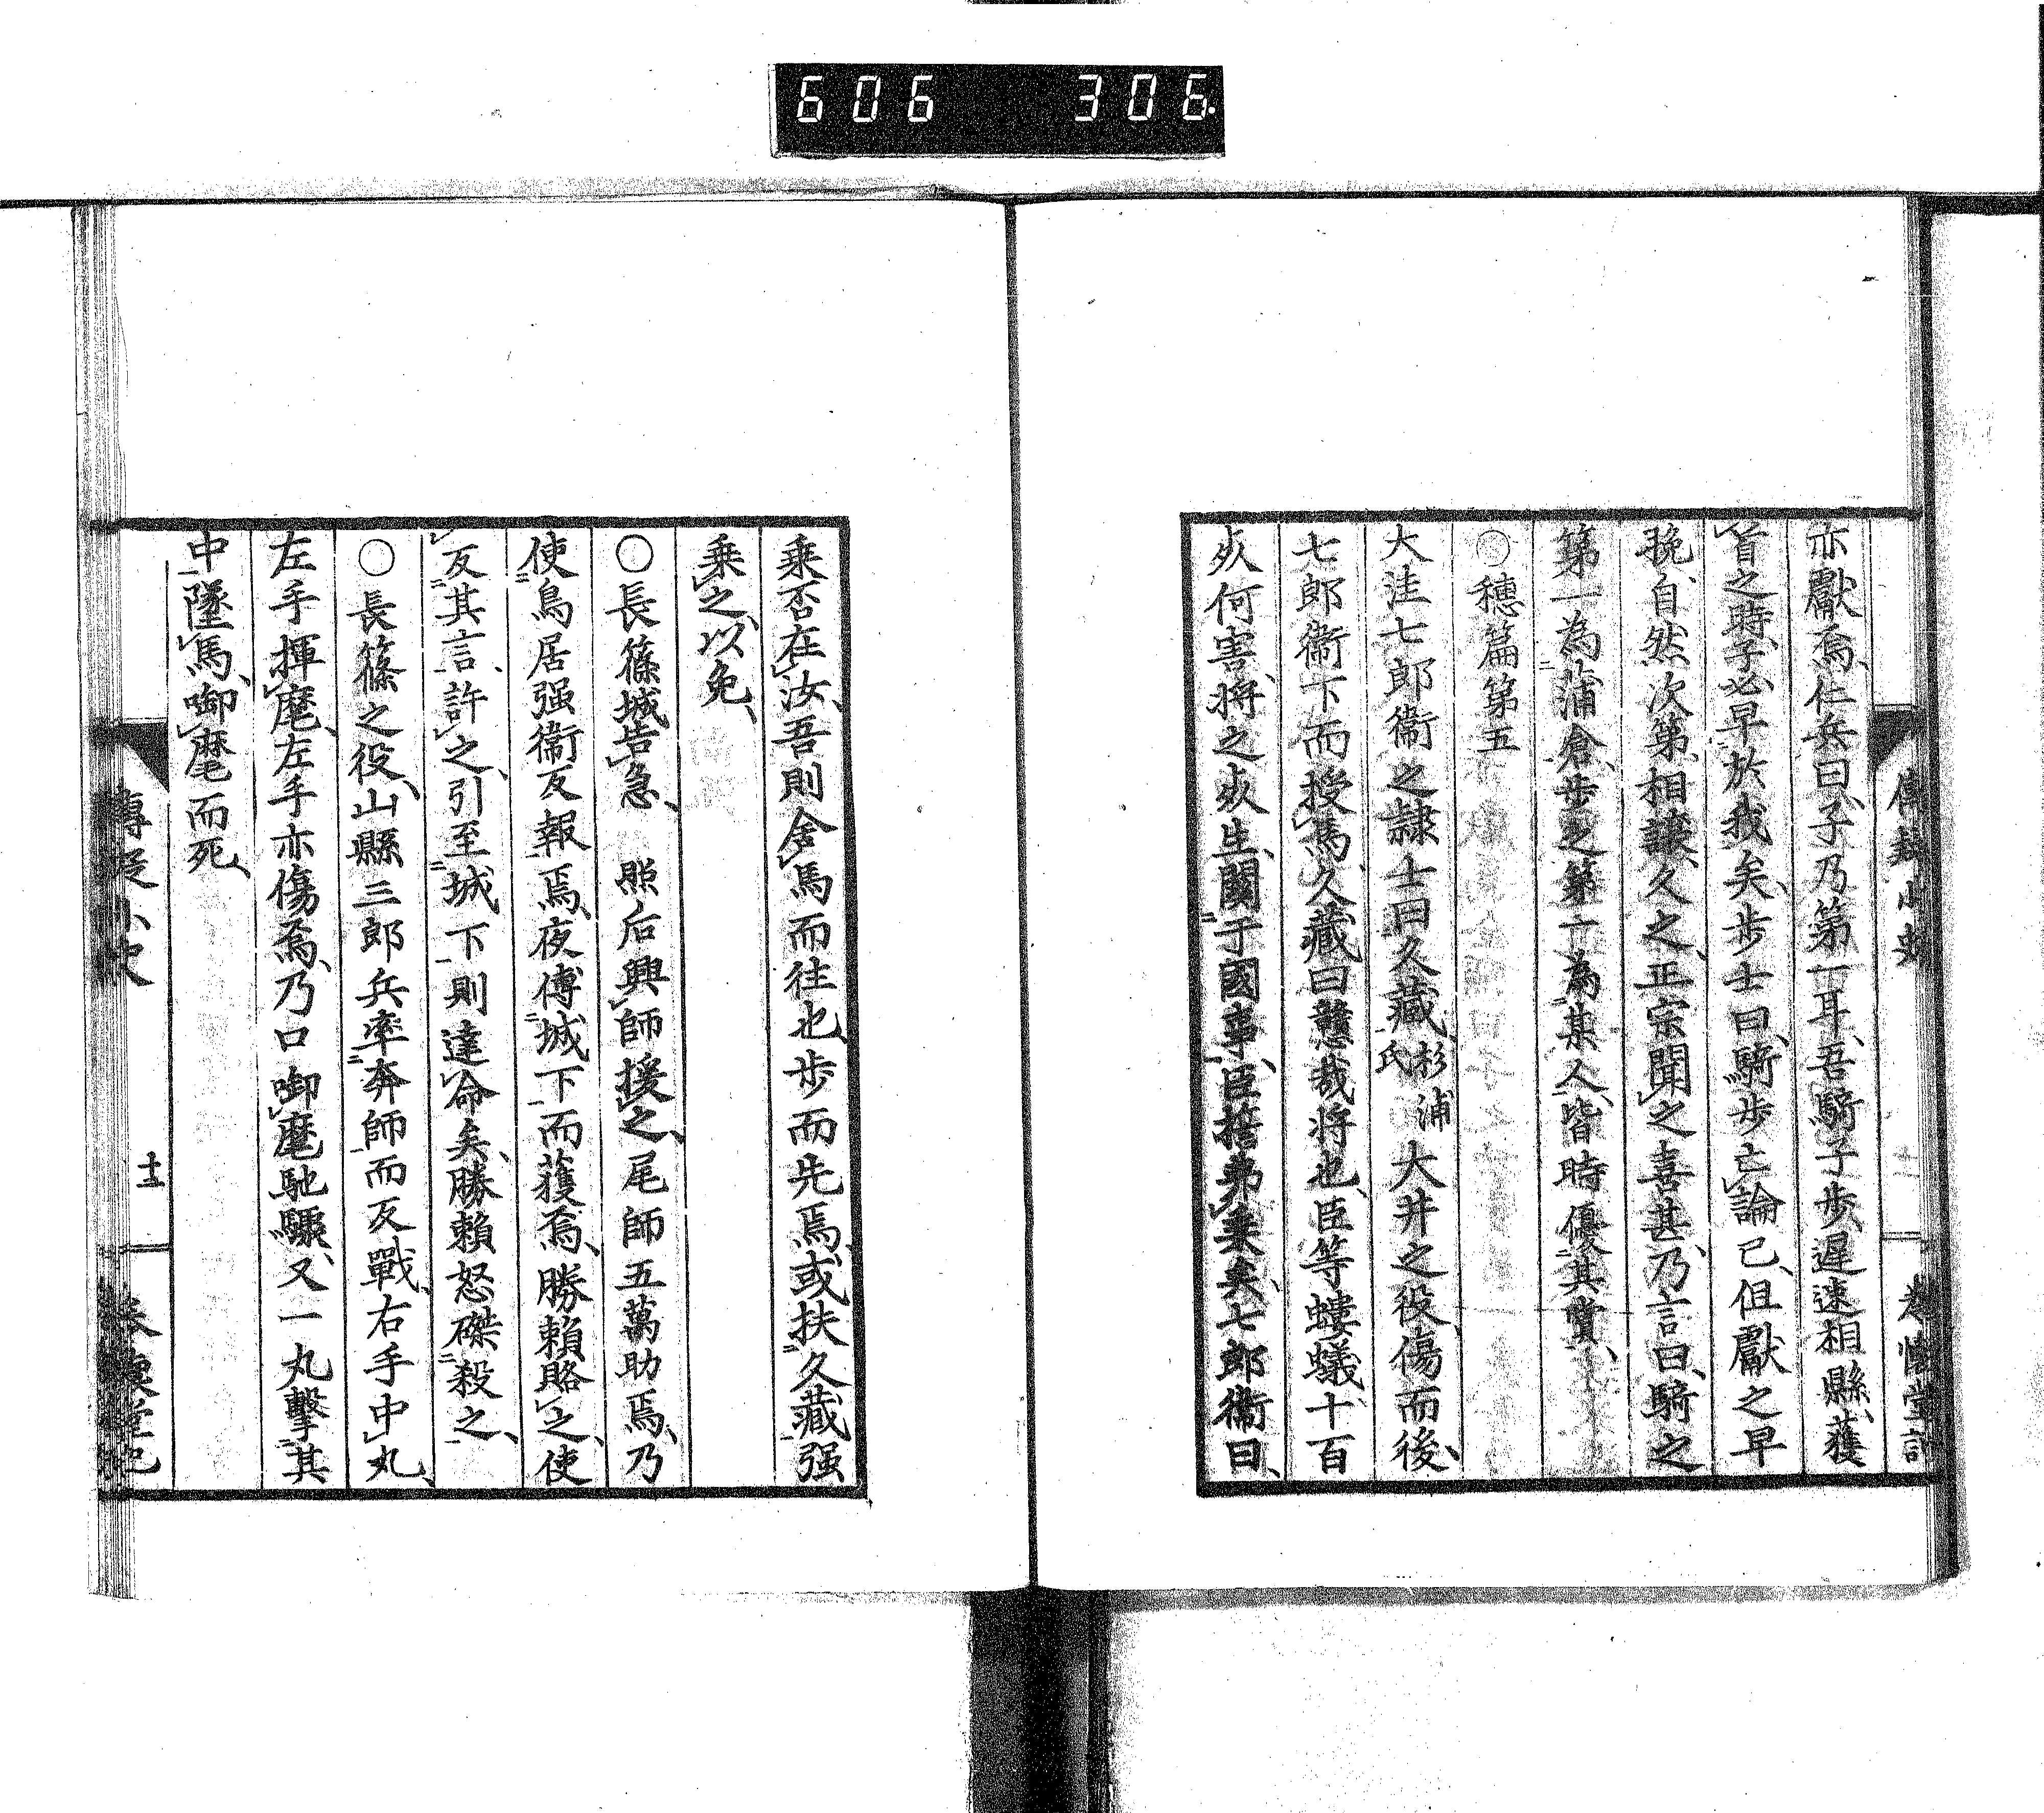 606 306.
亦獻焉、仁兵曰、子乃第一耳、吾騎子歩、遲速相縣、獲
首之時、子必早於我矣、歩士曰、騎歩亡論已、但獻之早
晚、自然次第、相讓久之、正宗聞之喜甚、乃言曰、騎之
第一為蒲倉、歩之第一為某人、皆時優其賞、
○穗篇第五
大洼七郎衞之隷士曰久藏、杉浦氏 大井之役傷而後、
七郎衞下而授馬、久藏曰戇哉將也、臣等螻蟻十百
死何害、將之死生、關于國事、臣誓弗乗矣、七郎衞曰、
乗否在汝、吾則舍馬而往也、歩而先焉、或扶久藏强
乗之、以免、
○長篠城告急、 照后興師援之、尾師五萬助焉、乃
使鳥居强衞反報焉、夜傅城下而獲焉、勝賴賂之、使
反其言、許之、引至城下則達命矣、勝賴怒磔殺之、
○長篠之役、山縣三郎兵率奔師而反戰、右手中丸、
左手揮麾、左手亦傷焉、乃口啣麾馳驟、又一丸擊其
中、墜馬、啣麾而死、
十二